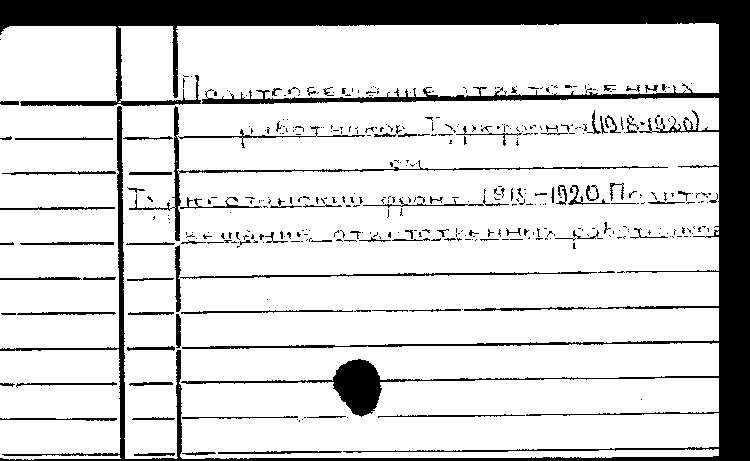 Политсовещание ответственных
работников Туркфронта (1918-1920).
см.
Туркестанский фронт. 1918-1920. Политсо
вещание ответственных работников